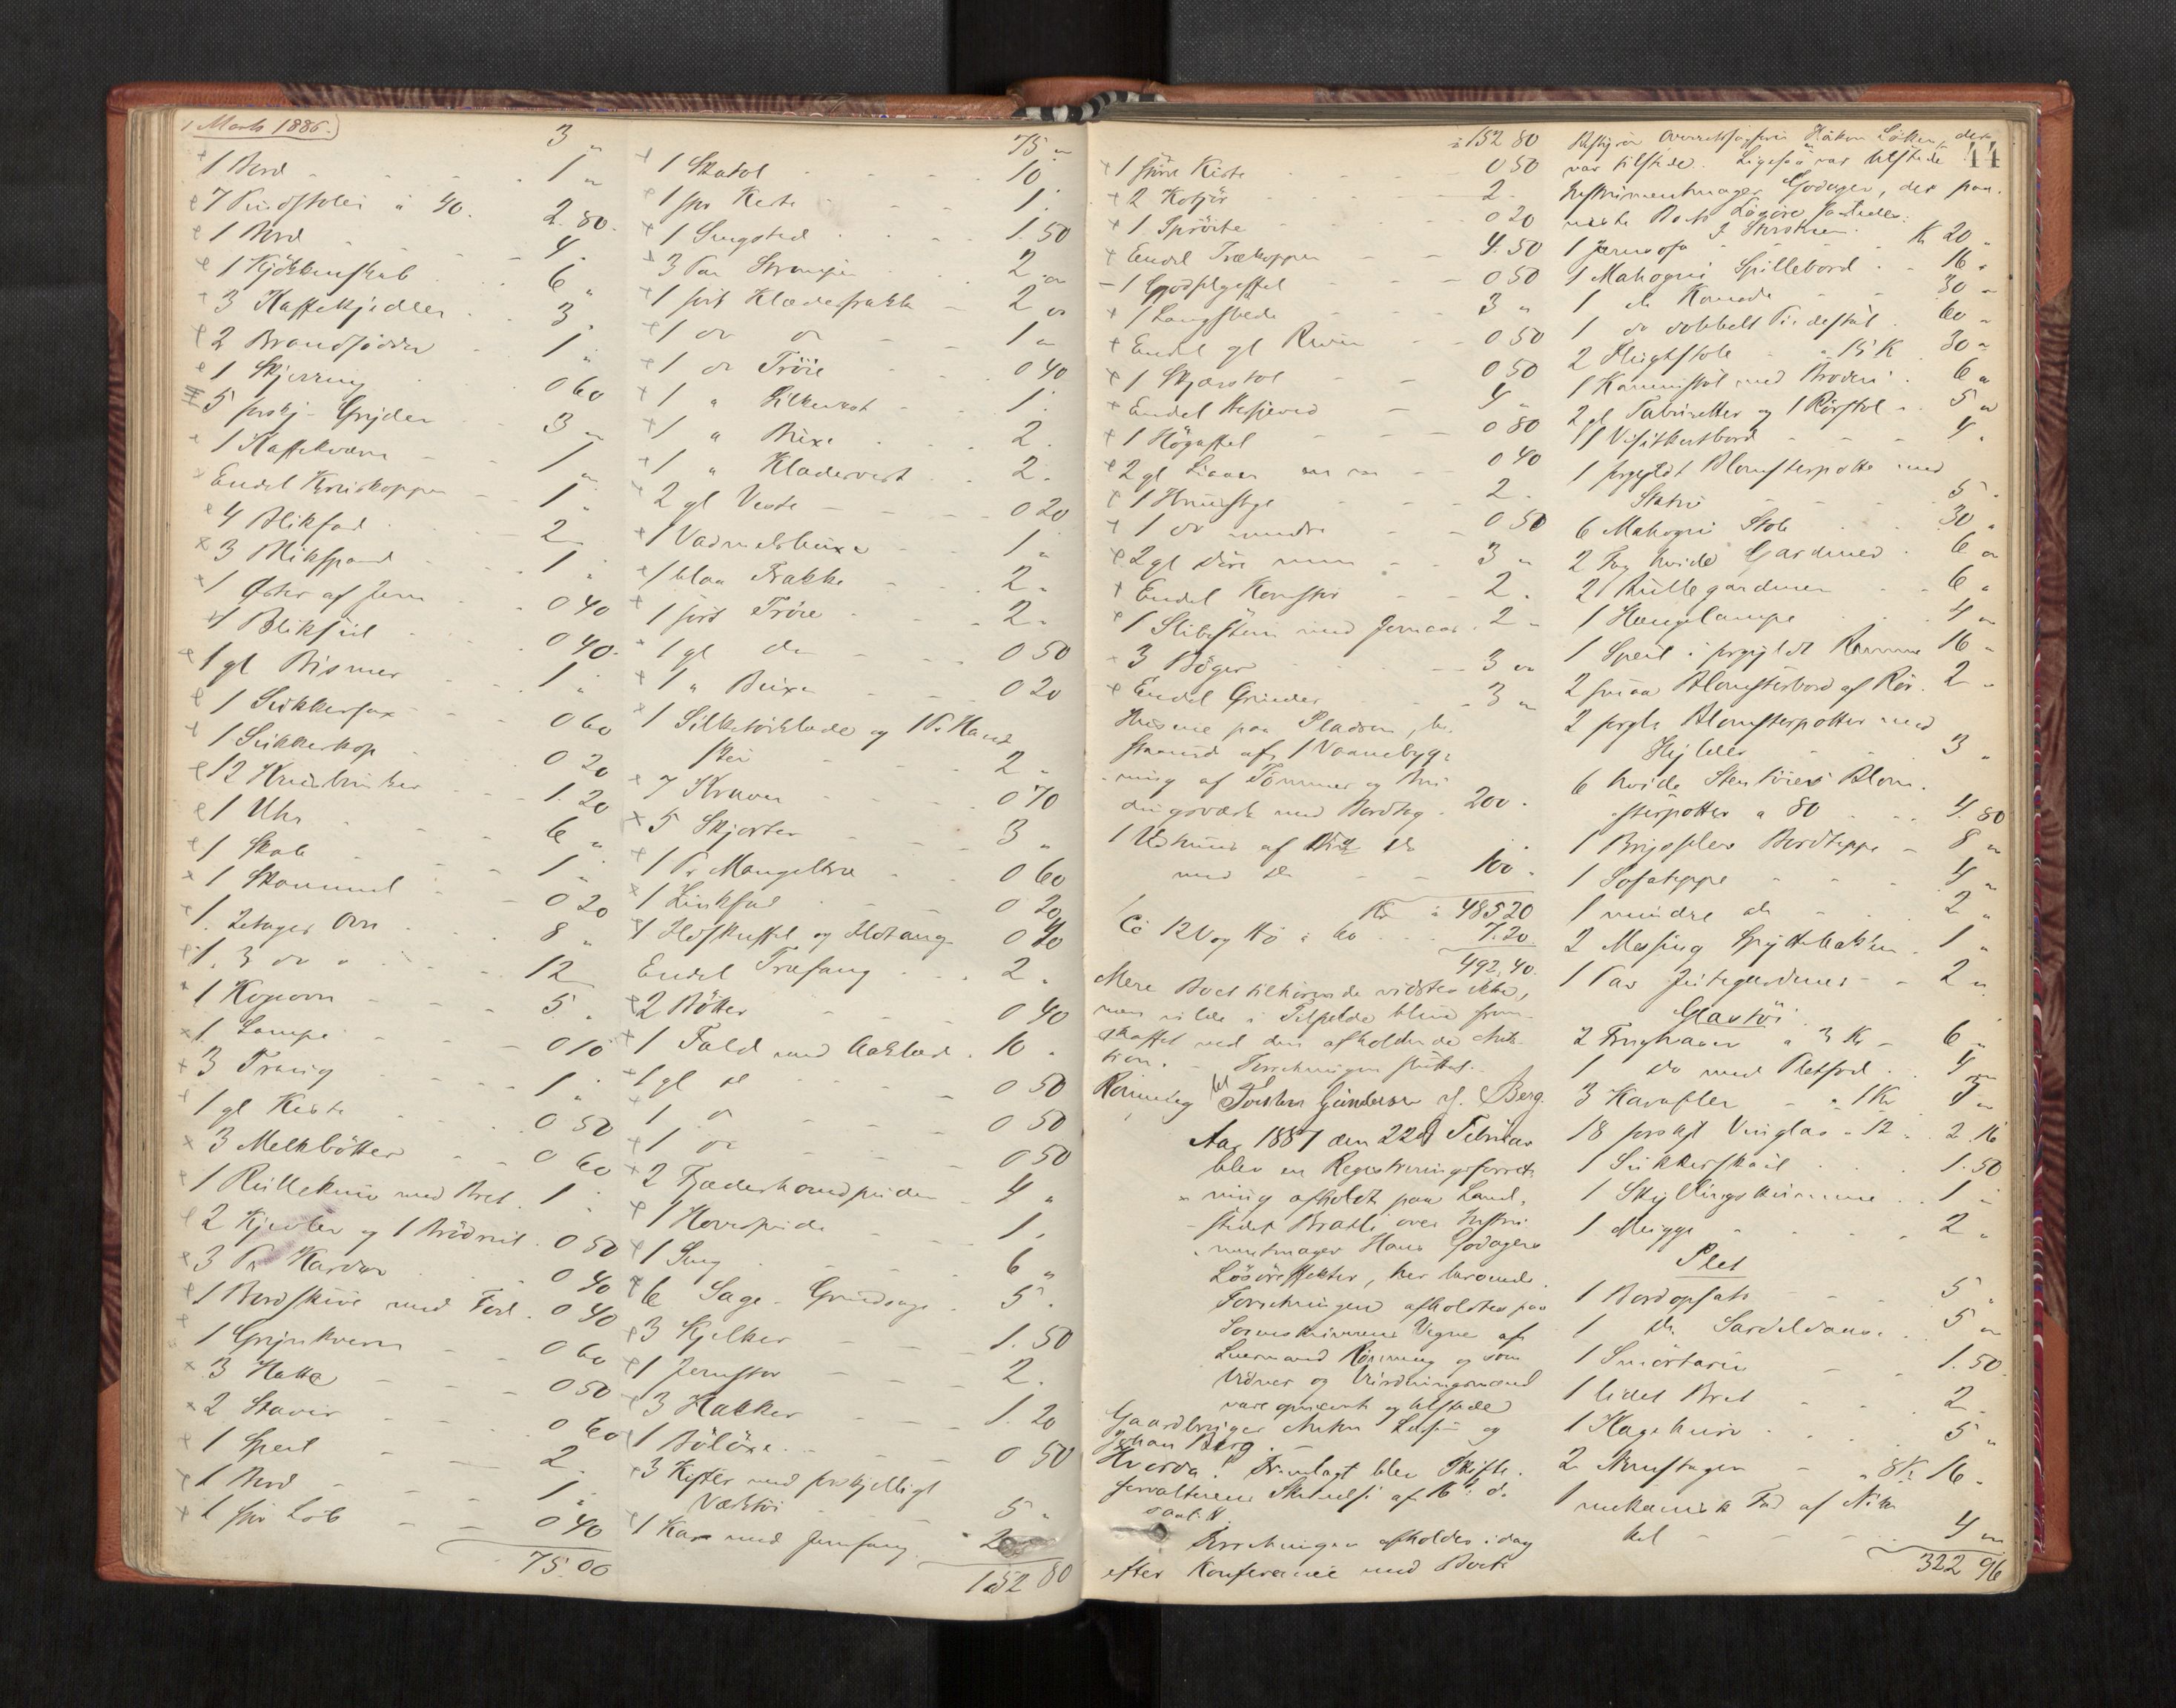 1 Marts 1886.)
3 "
1 Bord 1 "
7 Pindstoler á 40. 2.80.
1 Bord 4.
1 Kjökkenskab 6 "
3 Kaffekjedler 3.
2 Brandjödder 1 "
1 Skjerring 0 60
5 forskj. Gryder 3 "
1 Kaffekværn 1 "
Endel Kruskopper 1 "
4 Blikfad 2
3 Blikspand 1 "
1 Öster af Jern 0 40
1 Blikfiil 0 40.
1 gl Bismer 1 "
1 Sukkersax 0 60
1 Sukkerkop 0 20
12 1.20
1 Uhr 6 "
1 Skab 1 "
1 Skammel 0 20
1. 2etages Ovn 8 "
1. 3 do " 12
1 Kogeovn 5. "
1 Lampe 0 10
3 Traug 1 "
1 gl Kiste 0 50
3 Melkbötter 0 60
1 Rullekniv med Bret. 1 "
2 Kjevler og 1 Brödspit. 0 50
3 Pr Karder 0 40
1 Bordskive med Fod. 0 40
1 Grynkvern 0 60
3 Hakke 0 50
2 Staver 0 60
1 Speil 2.
1 Bord 1 "
1 stor Löb 0 40
75.00
75 "
1 Skatol 10
1 stor Kiste 1.
1 Sengsted 1.50
3 Par Strömper 2. "
1 sort Klædesfrakk 2 "
1 do do 1 "
1 do Tröie 0 40
1 " Silkevest 1.
1 " Buxe 2.
1 " Klædesvest 2.
2 gl Veste 0 20
1 Vadmelsbuxe 1 "
1 blaa Frakke 2 "
1 sort Tröie 2 "
1 gl do 0 50
1 " Buxe 0 20
1 Silketörklæde og 1 Pr. Hand
sker 2 "
7 Kraver 0 70
5 Skjorter 3 "
1 Pr Mangeltræ 0 60
1 Zinkfad 0 20
1 Ildskuffel og Ildtang 0 40
Endel Træfang 2.
2 Bötter 0 40
1 Fæld med Aaklæd. 10 "
1 gl do 0 50
1 do 0 50
1 do 0 50
2 Fjæderhovedpuder 4 "
1 Hovedpude 1.
1 Seng 6 "
6 Sage. Grindsage 5.
3 Kjelker 1.50
1 Jernstör 2.
3 Hakker 1.20
1 Bölöxe 0 50
3 Kister med forskjelligt
Værktöi 5 "
1 Kar med Jernfang. 2
152 80
152 80
1 större Kiste 0 50
2 Kofjör 2 "
1 Spröite 0 20
Endel Trækopper 4.50
1 Gjödselgaffel 0 50
1 Langslæde 3 "
Endel gl 0 50
1 Skjærstol 0 50
Endel Hesjeved 4 "
1 Högaffel 0 80
2 gl Liaaer 0 40
1 2.
1 do mindre 0 50
2 gl 3 "
Endel 2.
1 Slibesteen med Jernaas. 2 "
3 Bøger 3 "
Endel Grinder 3 "
Husene paa Pladsen, be-
staaende af 1 Vaanebyg-
ning af Tömmer og Bin-
dingsværk med Bordtag. 200.
1 Udhuus af do
med do 100.
Kr 485 20
7.20
492,40.
Mere Boet tilhørende vidstes ikke,
men vilde i Tilfælde blive frem-
skaffet ved den afholdende Auk-
tion. Forretningen sluttet.
Rönning Torsten Gundersen m. p. Berg.
Aar 1887 den 22de Februar
blev en Registreringsforret-
ning afholdt paa Land-
stedet Bratli over Instru-
mentmager Hans Godagers
Lösöreffekter, her værende.
Forretningen afholdtes paa
Sorenskriverens Vegne af
Lensmand Rönning og som
Vidner og Vurderingsmænd
vare opnævnt og tilstede
Gaardbruger Anton og
Johan Berg.
Hvorda! Fremlagt blev Skifte-
forvalterens Skrivelse af 16 d.
saal:
Forretningen afholdes idag
efter Konferance med Boets
44
Bestyrer Overretssagfører Haakon Löken, der
var tilstede. Ligesaa var tilstede
Instrumentmager Godager, der paa-
viste Boets Lösöre saaledes:
I Storstuen.
1 Jernsofa Kr 20 "
1 Mahogni Spillebord 16 "
1 do Komode 30 "
1 do dobbelt Pindestol 60 "
2 Flugtstole á 15 K 30 "
1 Kaminstol med Broderi 6 "
2 gl Taburetter og 1 Rörstol 5 "
1 Visitkortbord 4 "
1 forgyldt Blomsterpotte med
Stativ 5 "
6 Mahogni Stole 30 "
2 Fag hvide Gardiner 6 "
2 Rullegardiner 6 "
1 Hængelampe 4 "
1 Speil i forgyldt Ramme 16 "
2 smaa Blomsterbord af Rör. 2 "
2 forgl. Blomsterpotter med
Hylder 3 "
6 hvide Stentöies Blom-
sterpotter a 80 4.80
1 Bryssler Bordteppe 8 "
1 Sofateppe 4 "
1 mindre do 2 "
2 Messing Spyttebakker 1 "
1 Par Jutegardiner 2 "
Glastöi
2 a 3 Kr 6 "
1 do med Pletfod 4 "
3 Karafler á 1 Kr 3 "
18 forskjl. Vinglas á 12 2.16
1 Sukkerskaal 1.50
1 Skyllingskumme 1 "
1 Mugge 2 "
Plet
1 Bordopsats 5 "
1 do Sardeldaase 5 "
1 Smörtarin 1.50
1 lidet Bret 2 "
1 Kagekurv 5 "
2 Armstager á 8 Kr 16 "
1 mekanisk Fad af Nik-
kel 4 "
322 96